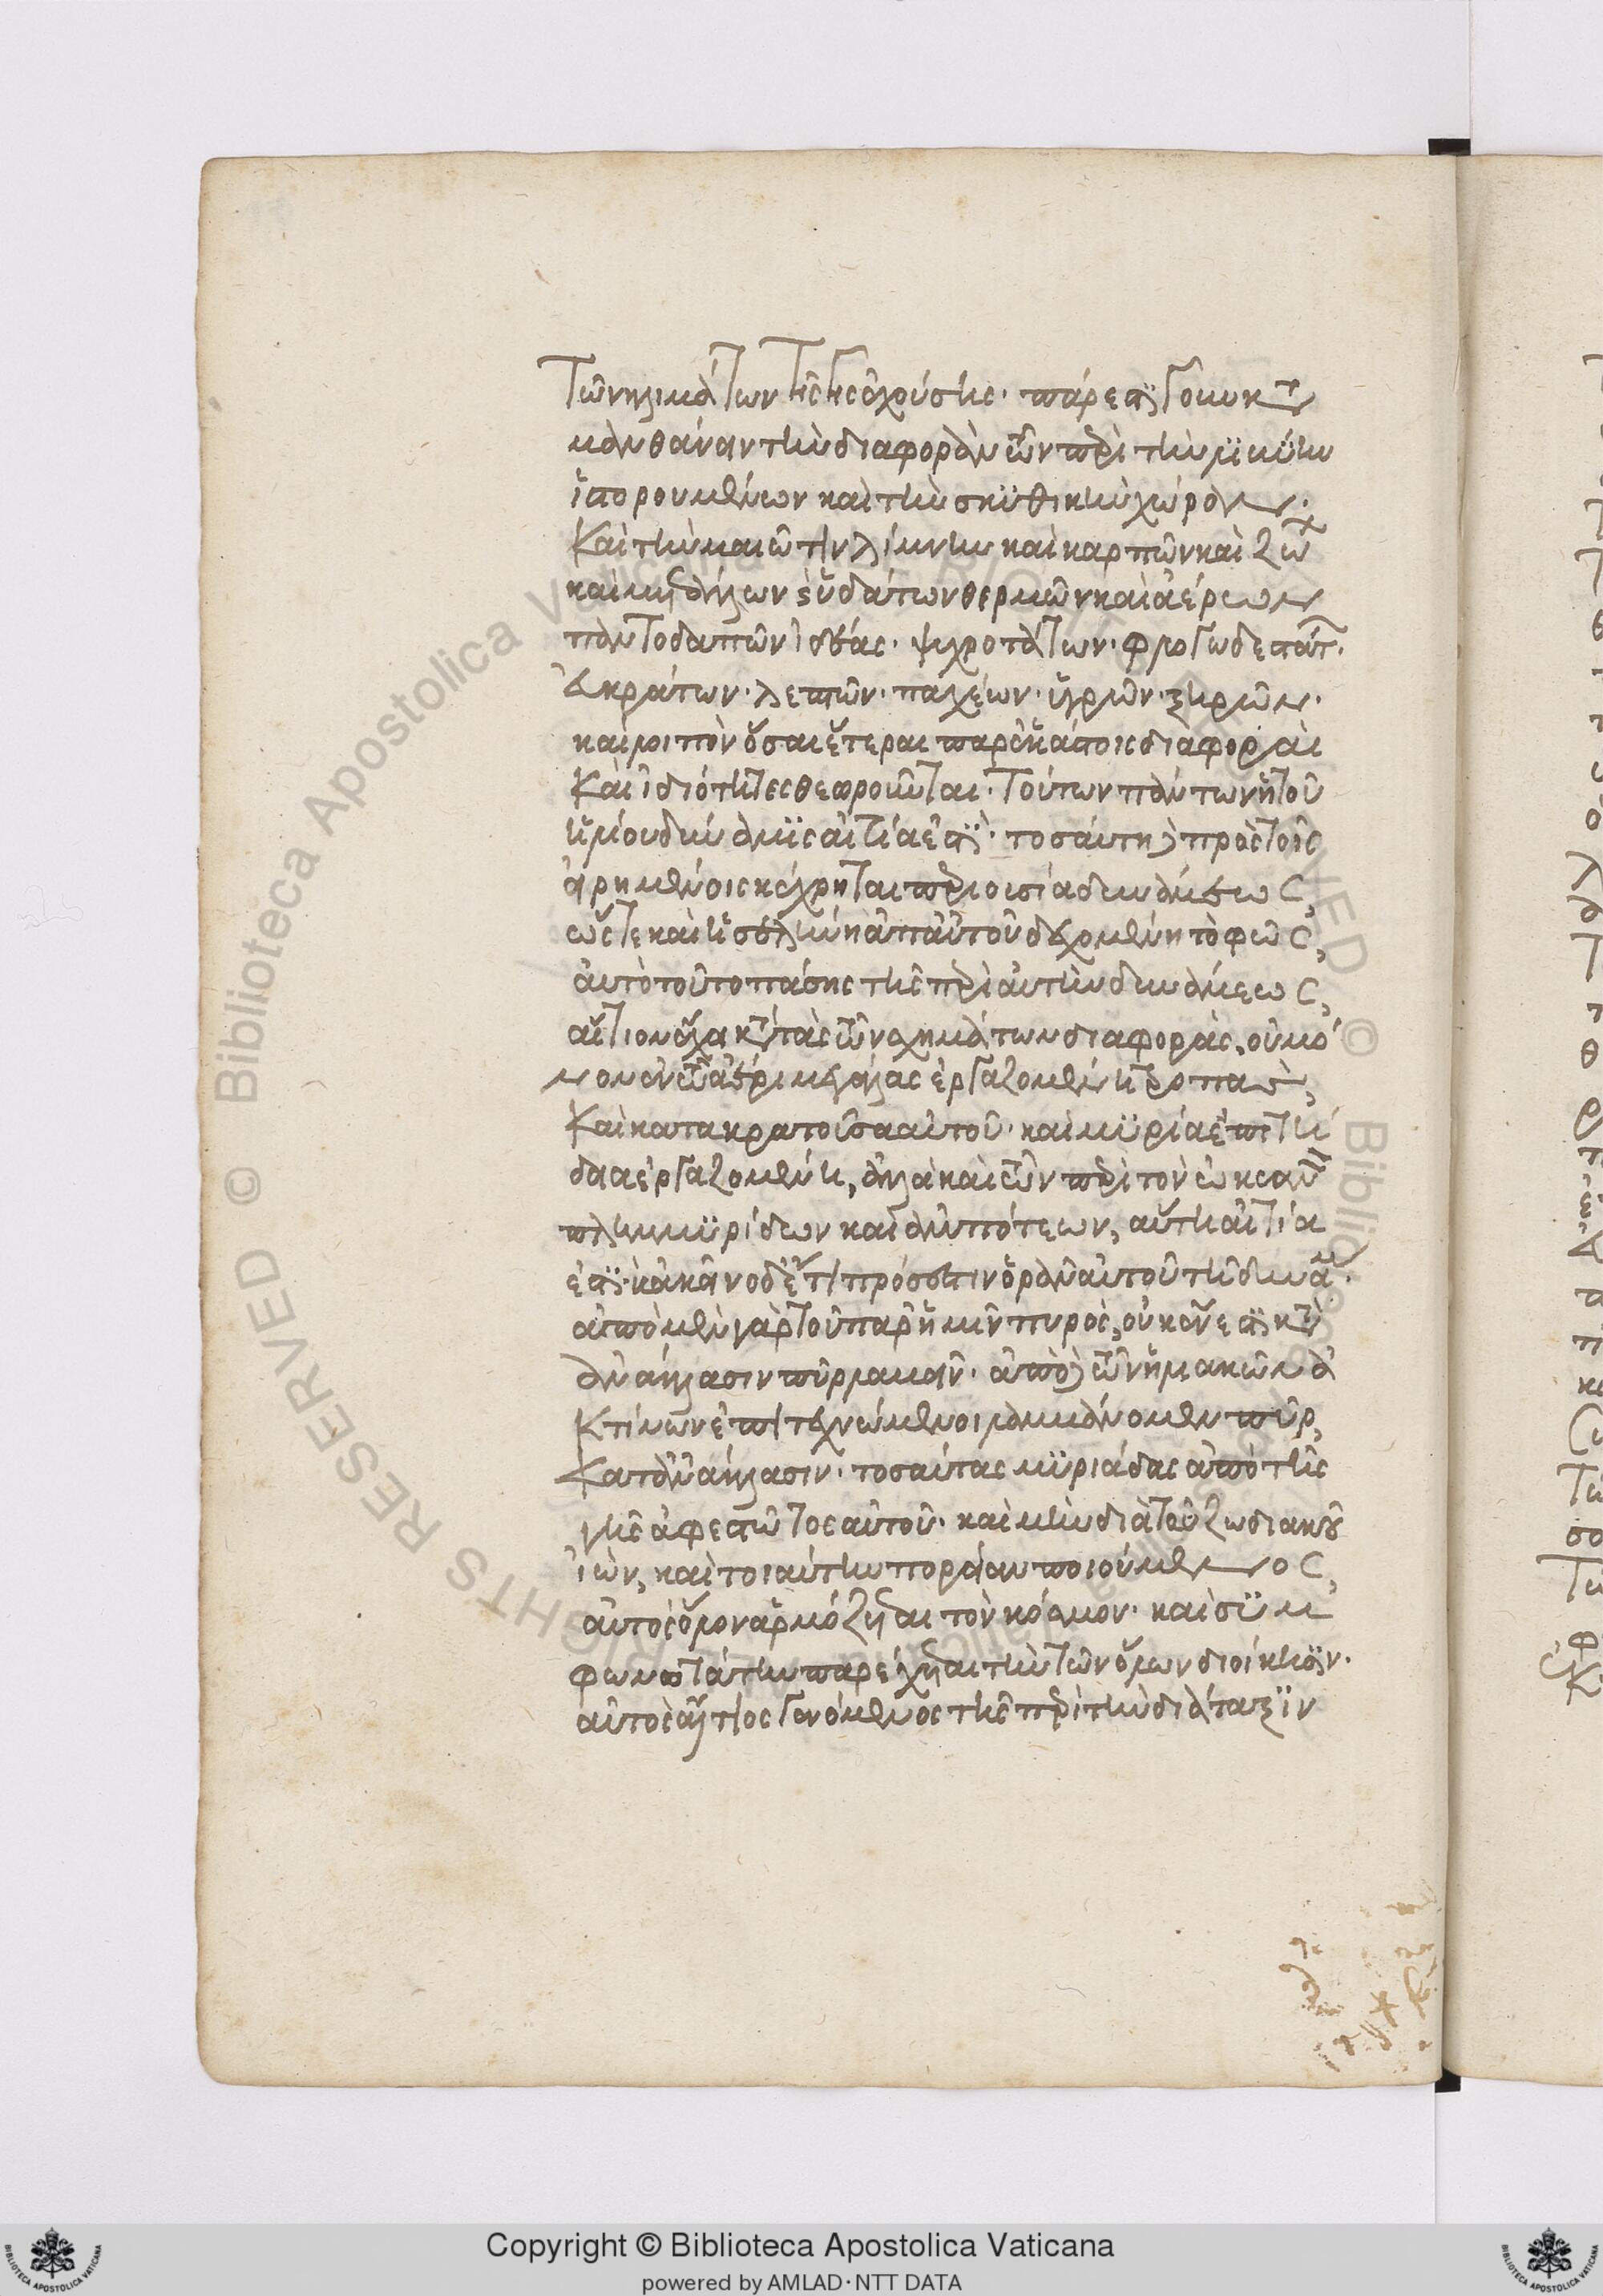 τῶν κλιμάτων τῆς γῆς ἐχούσης. πάρεστι γοῦν κ(α)τ(α)
μανθάνειν τὴν διαφορὰν τῶν περὶ τὴν λιβύην
ἱστορουμένων καὶ τὴν σκϋθικὴν χώραν.
καὶ τὴν μαιῶτιν λίμνην καὶ καρπῶν καὶ ζώων
καὶ μετάλλων καὶ ὑδάτων θερμῶν καὶ ἀέρων
παντοδαπῶν ἰδέας. ψυχροτάτων. φλογωδεστάτ.
ἀκράτων. λεπτῶν. παχέων. ὑγρῶν. ξηρῶν.
καὶ λοιπὸν ὅσαι ἕτεραι παρ' ἑκάστοις διαφοραὶ
καὶ ἰδιότητες θεωροῦνται. τούτων πάντων ἡ τοῦ
ἡλίου δύναμϊς αἰτία ἐστϊ. τοσαύτη δὲ πρὸς τοῖς
εἰρημένοις κέχρηται περιουσία δυνάμεως,
ὥστε καὶ ἡ σελήνη ἀπ' αὐτοῦ δεχομένη τὸ φῶς,
αὐτὸ τοῦτο πάσης τῆς περὶ αὐτὴν δυνάμεως,
αἴτιον ἔχει κατὰ τὰς τῶν σχημάτων διαφοράς, οὐ μό
νον ἐν τῷ ἀέρι μεγάλας ἐργαζομένη τροπὰς,
καὶ κατακρατοῦσα αὐτοῦ. καὶ μϋρία ἐπιτή
δεια ἐργαζομένη, ἀλλὰ καὶ τῶν περὶ τὸν ὠκεανὸν
πλημμϋρίδων καὶ ἀμπώτεων, αὕτη αἰτία
ἐστϊ. κἀκεῖνο δ' ἔτι πρόσεστιν ὁρᾶν αὐτοῦ τῇ δυνάμ.
ἀπὸ μὲν γὰρ τοῦ παρ' ἡμῖν πυρὸς, οὐκ ἔνεστϊ κατὰ
ἀνάκλασιν πῦρ λαβεῖν. ἀπὸ δὲ τῶν ἡλιακῶν ἀ
κτίνων ἐπιτεχνώμενοι λαμβάνομεν πῦρ,
κατ' ἀνάκλασιν. τοσαύτας μϋριάδας ἀπὸ τῆς
γῆς ἀφεστῶτος αὐτοῦ. καὶ μὴν διὰ τοῦ ζωδιακοῦ
ἰὼν, καὶ τοιαύτην πορείαν ποιούμενος,
αὐτὸς ὅλον ἁρμόζεται τὸν κόσμον. καὶ σϋμ
φωνοτάτην παρέχεται τὴν τῶν ὅλων διοίκησϊν.
αὐτὸς αἴτιος γενόμενος τῆς περὶ τὴν διάταξϊν
Copyright © Biblioteca Apostolica Vaticana
powered by AMLAD·NTT DATA